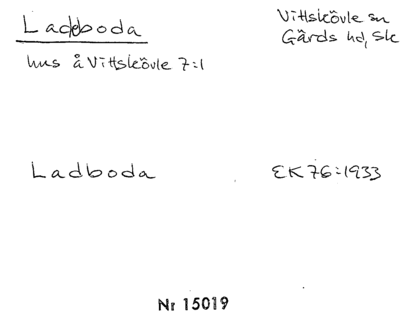 Ladeboda
Vittskövle sn
Gärds hd, Sk
hus å Vittskövle 7:1
Ladboda
EK 76:1933
Nr 15019